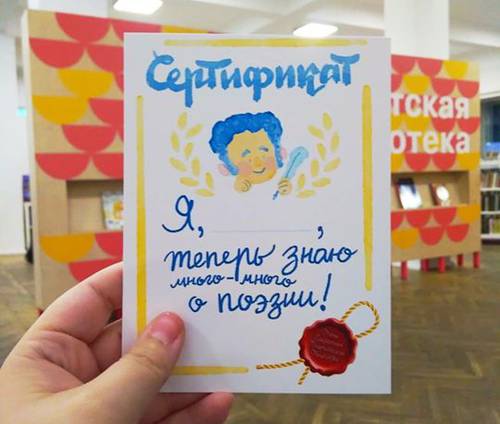 Сертификат
Я, ,
теперь знаю
много-много
о поэзии!
тская
отека